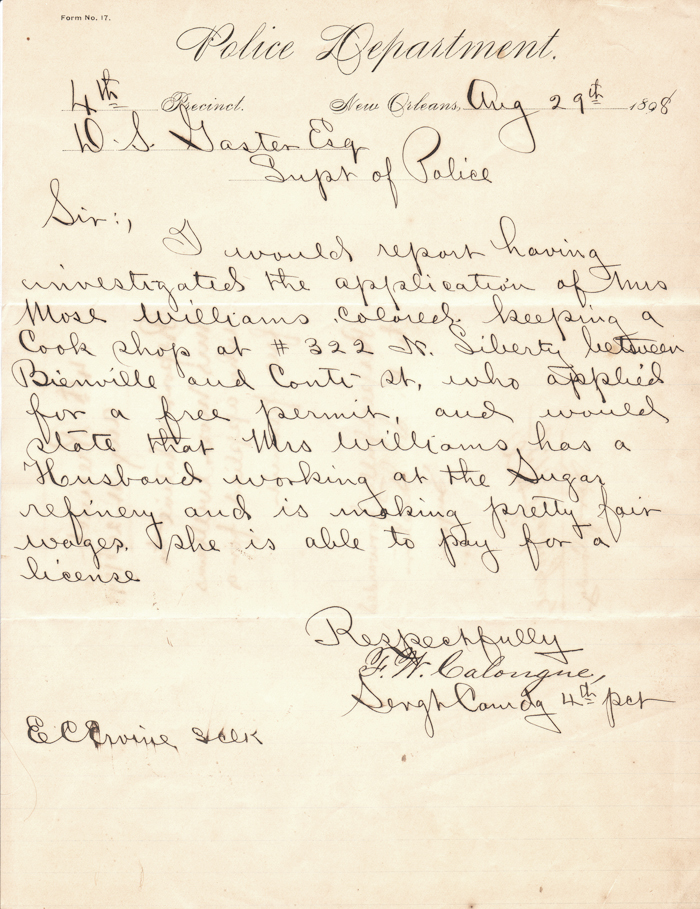 Form No. 17.
Police Department.
4th Precinct. New Orleans, Aug 29th 1898
D. S. Gaster Esq
Supt of Police
Sir:,
I would report having
investigated the application of Mrs
Mose Williams, colored, keeping a
Cook shop at # 322 N. Liberty between
Bienville and Conti st, who applied
for a free permit, and would
state that Mrs Williams has a
Husband working at the Sugar
refinery and is making pretty fair
wages, she is able to pay for a
license
Respectfully
F. W. Calongne,
Sergt Comdg 4th pct
E C Ervine